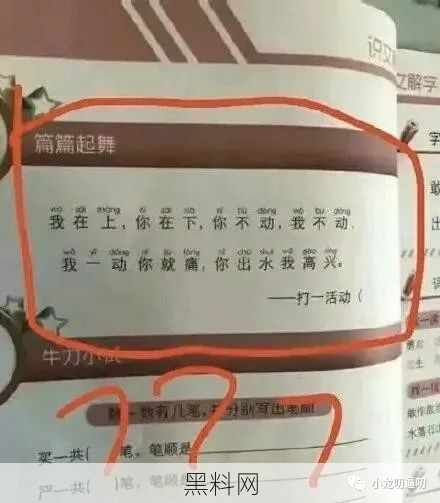 识文
文解字
篇篇起舞
wǒ zài shàng nǐ zài xià nǐ bú dòng wǒ bú dòng
我在上，你在下，你不动，我不动，
wǒ yí dòng nǐ jiù tòng nǐ chū shuǐ wǒ gāo xìng
我一动你就痛，你出水我高兴。
——打一活动（
牛刀小试
数一数有几笔，
写出笔顺
买一共( 笔，笔顺是
严一共( )笔，笔顺是
字
敢
出
黑料网
小龙明道明